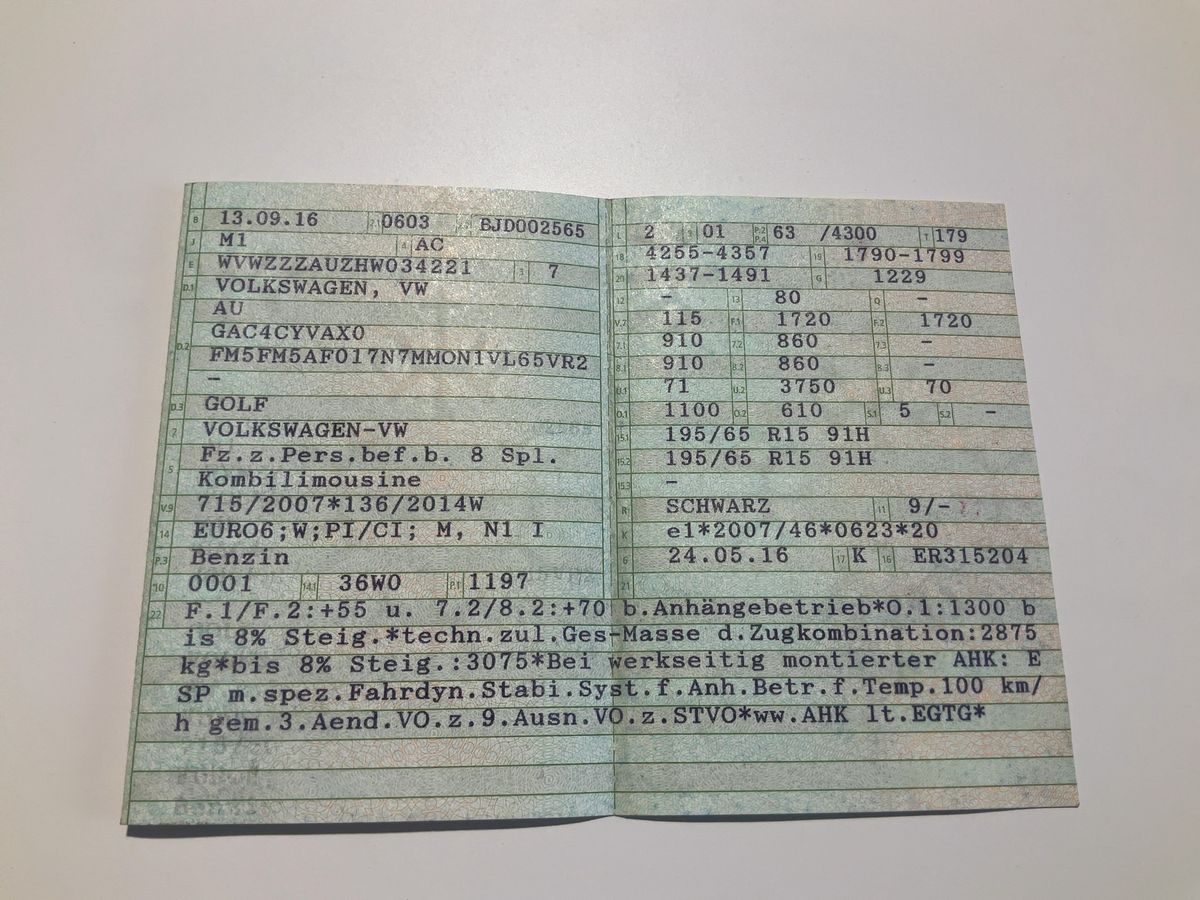 B 13.09.16 2.1 0603 2.2 BJD002565
J M1 4 AC
E WVWZZZAUZHW034221 3 7
D.1 VOLKSWAGEN, VW
AU
D.2 GAC4CYVAX0
FM5FM5AF017N7MMON1VL65VR2
-
D.3 GOLF
2 VOLKSWAGEN-VW
5 Fz.z.Pers.bef.b. 8 Spl.
Kombilimousine
V.9 715/2007*136/2014W
14 EURO6;W;PI/CI; M, N1 I
P.3 Benzin
10 0001 14.1 36W0 P.1 1197
L 2 9 01 P.2 P.4 63 /4300 T 179
18 4255-4357 19 1790-1799
20 1437-1491 G 1229
12 - 13 80 Q -
V.7 115 F.1 1720 F.2 1720
7.1 910 7.2 860 7.3 -
8.1 910 8.2 860 8.3 -
U.1 71 U.2 3750 U.3 70
O.1 1100 O.2 610 S.1 5 S.2 -
15.1 195/65 R15 91H
15.2 195/65 R15 91H
15.3 -
R SCHWARZ 11 9/-
K e1*2007/46*0623*20
6 24.05.16 17 K 16 ER315204
21
22 F.1/F.2:+55 u. 7.2/8.2:+70 b.Anhängebetrieb*O.1:1300 b
is 8% Steig.*techn.zul.Ges-Masse d.Zugkombination:2875
kg*bis 8% Steig.:3075*Bei werkseitig montierter AHK: E
SP m.spez.Fahrdyn.Stabi.Syst.f.Anh.Betr.f.Temp.100 km/
h gem.3.Aend.VO.z.9.Ausn.VO.z.STVO*ww.AHK lt.EGTG*